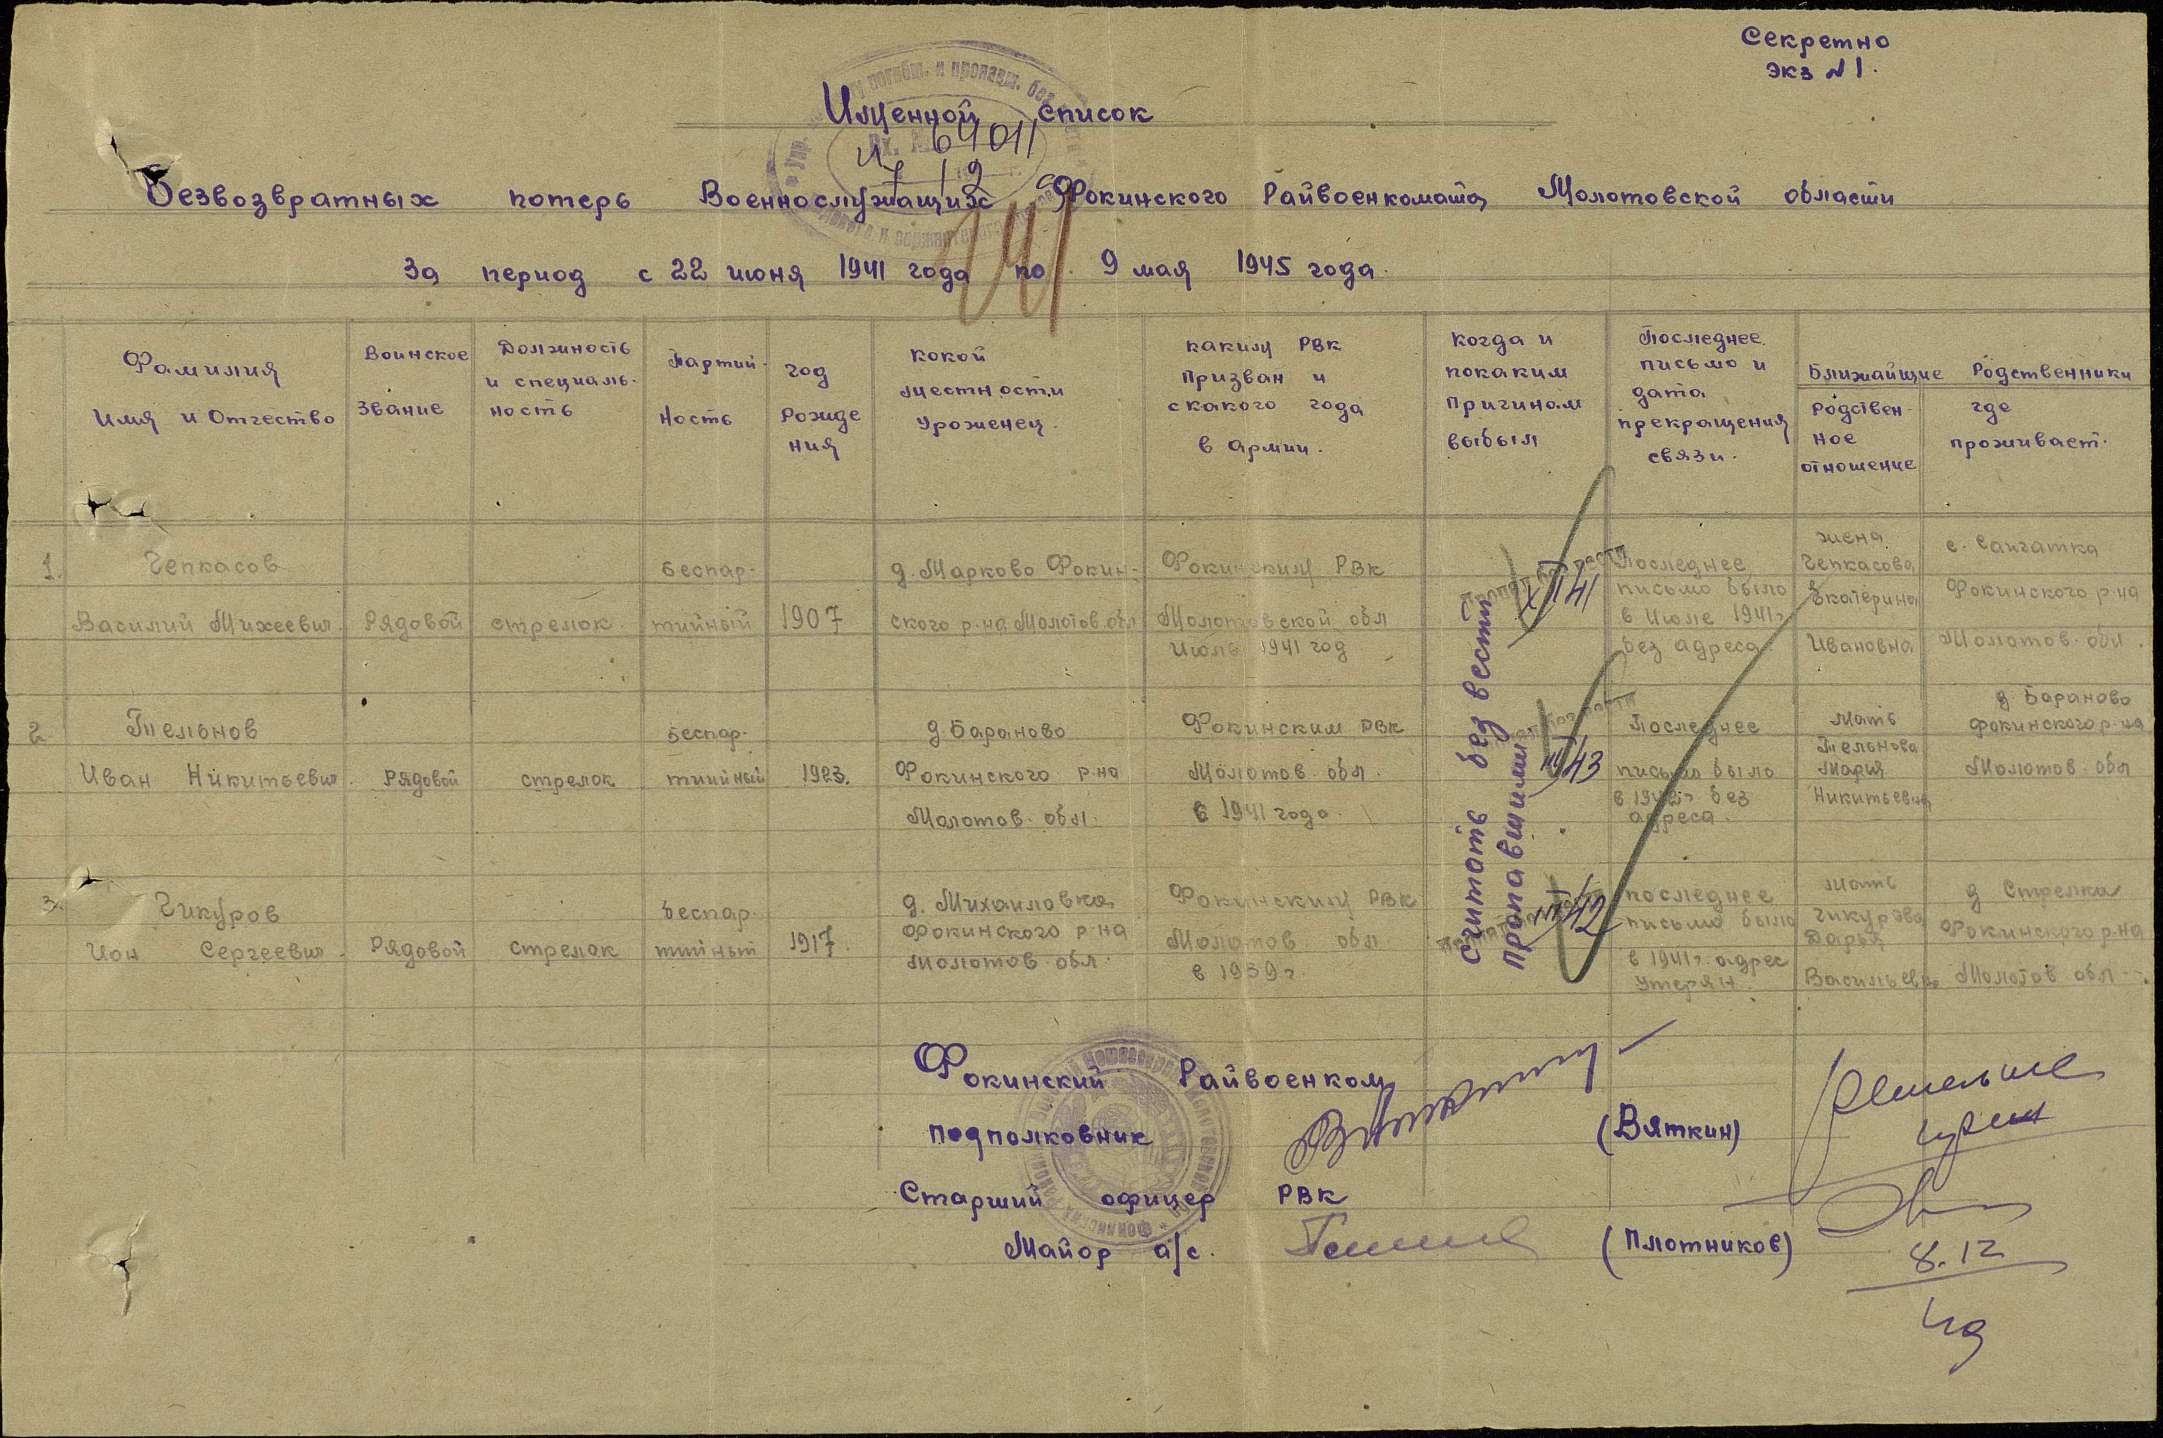 Секретно
Экз №1.
Именной список
64011
Безвозвратных потерь Военнослужащих Фокинского Райвоенкомата Молотовской области
За период с 22 июня 1941 года по 9 мая 1945 года.
Фамилия Имя и Отчество
Воинское звание
Должность и специальность
Партийность
год Рождения
какой местности уроженец.
каким РВК призван и с какого года в армии.
когда и по каким причинам выбыл
Последнее письмо и дата прекращения связи.
Ближайщие Родственники
Родственное отношение
где проживает.
1. Чепкасов Василий Михеевич.
Рядовой
стрелок
беспартийный
1907
д. Марково Фокинского р-на Молотов. обл
Фокинским РВК Молотовской обл Июль 1941 год
Пропал без вести
XII 41
Последнее письмо было в Июле 1941г без адреса
жена Чепкасова Екатерина Ивановна
с. Сайгатка Фокинского р-на Молотов. обл.
2. Тельнов Иван Никитьевич.
Рядовой
стрелок
беспартийный
1923.
д Бараново Фокинского р-на Молотов. обл.
Фокинским РВК Молотов. обл. в 1941 года.
43
Последнее письмо было в 1942г без адреса.
Мать Тельнова Мария Никитьевна
д Бараново Фокинского р-на Молотов. обл
3. Чикуров Ион Сергеевич.
Рядовой
стрелок
беспартийный
1917.
д. Михаиловка Фокинского р-на Молотов. обл.
Фокинским РВК Молотов. обл в 1939г.
42
последнее письмо было в 1941г. адрес утерян.
мать Чикурова Дарья Васильевна
д Стрелка Фокинского р-на Молотов обл.
считать без вести пропавшими
Фокинский Райвоенком
подполковник (Вяткин)
Старший офицер РВК
Майор а/с. (Плотников)
8.12